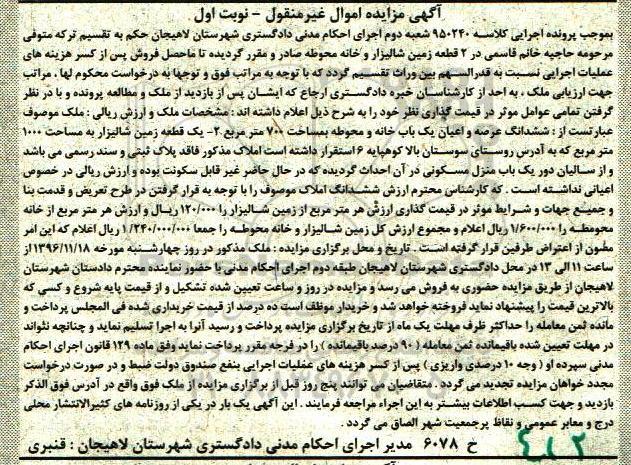 آگهی مزایده اموال غیرمنقول – نوبت اول
بموجب پرونده اجرایی کلاسه ۹۵۰۲۴۰ شعبه دوم اجرای احکام مدنی دادگستری شهرستان لاهیجان حکم به تقسیم ترکه متوفی
مرحومه حاجیه خانم قاسمی در ۲ قطعه زمین شالیزار و خانه محوطه صادر و مقرر گردیده تا ماحصل فروش پس از کسر هزینه های
عملیات اجرایی نسبت به قدرالسهم بین وراث تقسیم گردد که با توجه به مراتب فوق و توجها به درخواست محکوم لها ، مراتب
جهت ارزیابی ملک ، به احد از کارشناسان خبره دادگستری ارجاع که ایشان پس از بازدید از ملک و مطالعه پرونده و با در نظر
گرفتن تمامی عوامل موثر در قیمت گذاری نظر خود را به شرح ذیل اعلام داشته اند : مشخصات ملک و ارزش ریالی : ملک موصوف
عبارتست از : ششدانگ عرصه و اعیان یک باب خانه و محوطه بمساحت ۷۰۰ متر مربع ۲- یک قطعه زمین شالیزار به مساحت ۱۰۰۰
متر مربع که به آدرس روستای سوستان بالا کوهپایه ۶ استقرار داشته است املاک مذکور فاقد پلاک ثبتی و سند رسمی می باشد
و از سالیان دور یک باب منزل مسکونی در آن احداث گردیده که در حال حاضر غیر قابل سکونت بوده و ارزش ریالی در خصوص
اعیانی نداشته است . که کارشناس محترم ارزش ششدانگ املاک موصوف را با توجه به قرار گرفتن در طرح تعریض و قدمت بنا
و جمیع جهات و شرایط موثر در قیمت گذاری ارزش هر متر مربع از زمین شالیزار را ۱۲۰/۰۰۰ ریال و ارزش هر متر مربع از خانه
محوطه را ۱/۶۰۰/۰۰۰ ریال اعلام و مجموع ارزش کل زمین شالیزار و خانه محوطه را جمعا ۱/۲۴۰/۰۰۰/۰۰۰ ریال اعلام که این امر
مصون از اعتراض طرفین قرار گرفته است . تاریخ و محل برگزاری مزایده : ملک مذکور در روز چهارشنبه مورخه ۱۳۹۶/۱۱/۱۸ از
ساعت ۱۱ الی ۱۲ در محل دادگستری شهرستان لاهیجان طبقه دوم اجرای احکام مدنی با حضور نماینده محترم دادستان شهرستان
لاهیجان از طریق مزایده حضوری به فروش می رسد و مزایده در روز و ساعت تعیین شده تشکیل و از قیمت پایه شروع و کسی که
بالاترین قیمت را پیشنهاد نماید فروخته خواهد شد و خریدار موظف است ده درصد از قیمت خریداری شده فی المجلس پرداخت و
مانده ثمن معامله را حداکثر ظرف مهلت یک ماه از تاریخ برگزاری مزایده پرداخت و رسید آنرا به اجرا تسلیم نماید و چنانچه نتواند
در مهلت تعیین شده باقیمانده ثمن معامله ( ۹۰ درصد باقیمانده ) را در فرجه مقرر پرداخت نماید وفق ماده ۱۲۹ قانون اجرای احکام
مدنی سپرده او ( وجه ۱۰ درصدی واریزی ) پس از کسر هزینه های عملیات اجرایی بنفع صندوق دولت ضبط و در صورت درخواست
مجدد خواهان مزایده تجدید می گردد . متقاضیان می توانند پنج روز قبل از برگزاری مزایده از ملک فوق واقع در آدرس فوق الذکر
بازدید و جهت کسب اطلاعات بیشتر به این اجراء مراجعه فرمایند . این آگهی یک بار در یکی از روزنامه های کثیرالانتشار محلی
درج و معابر عمومی و نقاط پرجمعیت شهر الصاق می گردد .
خ ۶۰۷۸ مدیر اجرای احکام مدنی دادگستری شهرستان لاهیجان : قنبری